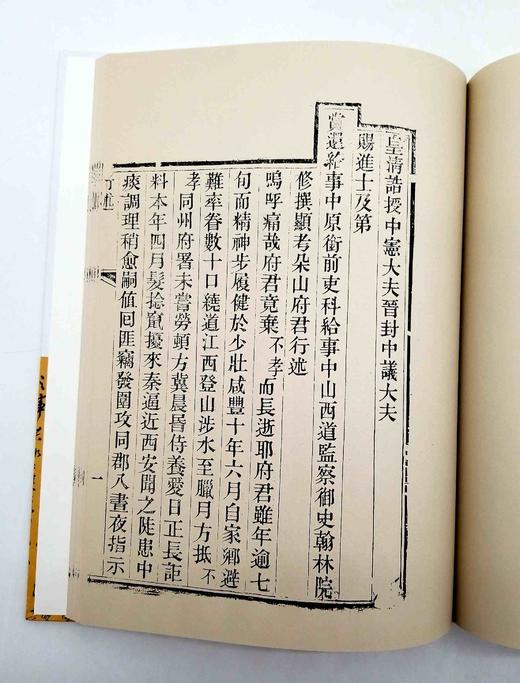 皇清誥授中憲大夫晉封中議大夫
賜進士及第
賞還給事中原銜前吏科給事中山西道監察御史翰林院
修撰顯考朵山府君行述
嗚呼痛哉府君竟棄不孝而長逝耶府君雖年逾七
旬而精神步履健於少壯咸豐十年六月自家鄉避
難率眷數十口繞道江西登山涉水至臘月方抵不
孝同州府署未嘗勞頓方冀晨昏侍養愛日正長詎
料本年四月髮捻竄擾來秦逼近西安聞之陡患中
痰調理稍愈嗣值回匪竊發圍攻同郡八晝夜指示
行述
一